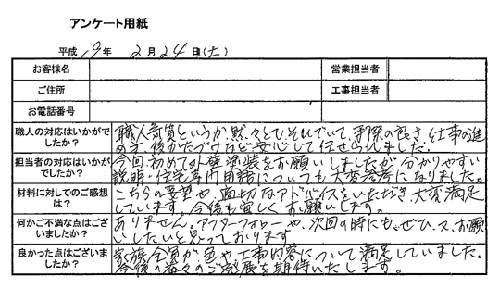 アンケート用紙
平成 19年 2月24日(土)
お客様名 営業担当者
ご住所 工事担当者
お電話番号
職人の対応はいかがで
したか？
職人気質というか、黙々と、それでいて、手際の良さ、仕事の進
め方、後かたづけなど安心して任せられました。
担当者の対応はいかが
でしたか？
今回初めて外壁塗装をお願いしましたが分かりやすい
説明・住宅専門用語についても大変参考になりました。
材料に対してのご感想
は？
こちらの要望や、適切なアドバイスをいただき、大変満足
しています。今後も宜しくお願いします。
何かご不満な点はござ
いましたか？
ありません。アフターフォローや、次回の時にも、ぜひ、お願
いしたいと思っております
良かった点はございま
したか？
家族全員が、色や工事内容について満足していました。
今後の益々のご発展を期待いたします。